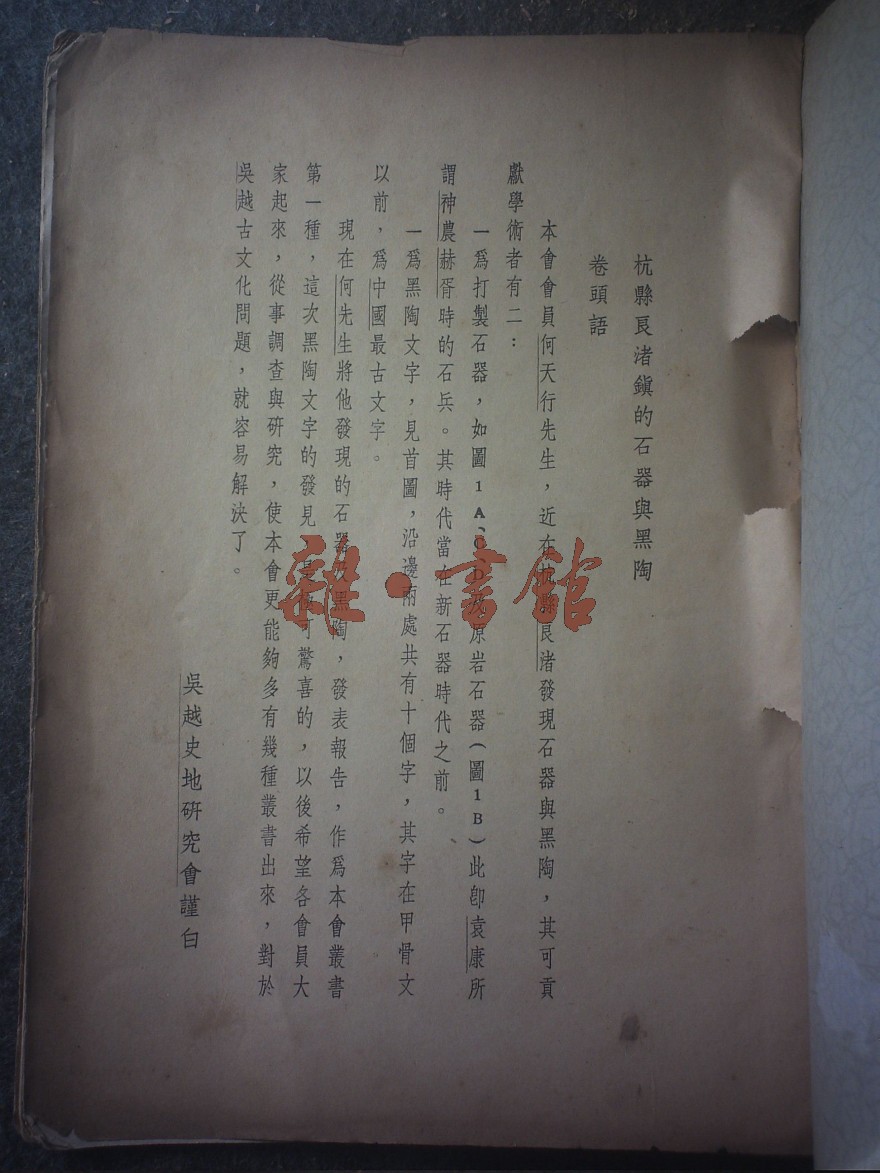 杭縣良渚鎭的石器與黑陶
卷頭語
本會會員何天行先生，近在杭縣良渚發現石器與黑陶，其可貢
獻學術者有二：
一爲打製石器，如圖1A、C、D及原岩石器（圖1B）此卽袁康所
謂神農赫胥時的石兵。其時代當在新石器時代之前。
一爲黑陶文字，見首圖，沿邊兩處共有十個字，其字在甲骨文
以前，爲中國最古文字。
現在何先生將他發現的石器及黑陶，發表報告，作爲本會叢書
第一種，這次黑陶文字的發見，是極可驚喜的，以後希望各會員大
家起來，從事調查與硏究，使本會更能夠多有幾種叢書出來，對於
吳越古文化問題，就容易解決了。
吳越史地硏究會謹白
雜·書館